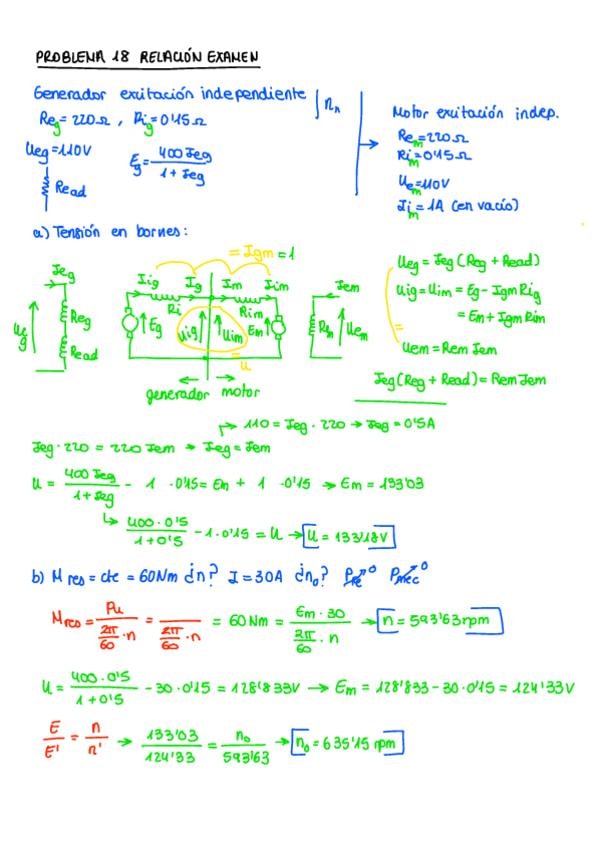 PROBLEMA 18 RELACIÓN EXAMEN
Generador exitación independiente
Reg = 220Ω , Rig = 0'15Ω
nn
Ueg = 110V
Eg = 400 Jeg / 1 + Jeg
Read
Motor exitación indep.
Rem = 220Ω
Rim = 0'15Ω
Uem = 110V
Iim = 1A (en vacío)
a) Tensión en bornes:
= Igm = 1
Jeg
Iig Ig Im Iim
Jem
Ueg
Reg
Read
Ri
Eg
Uig
Uim
Rim
Em
Rem
Uem
= u
generador motor
Ueg = Jeg (Reg + Read)
Uig = Uim = Eg - Igm Rig
= Em + Igm Rim
=
Uem = Rem Jem
Jeg (Reg + Read) = Rem Jem
110 = Jeg · 220 → Jeg = 0'5A
Jeg · 220 = 220 Jem → Jeg = Jem
U = 400 Jeg / 1 + Jeg - 1 · 0'15 = Em + 1 · 0'15 → Em = 133'03
400 · 0'5 / 1 + 0'5 - 1 · 0'15 = U → U = 133'18V
b) Mres = cte = 60Nm ¿n? I = 30A ¿n0? PFe 0 Pmec 0
Mres = Pu / 2π/60 · n = / 2π/60 · n = 60 Nm = Em · 30 / 2π/60 · n → n = 593'63 rpm
U = 400 · 0'5 / 1 + 0'5 - 30 · 0'15 = 128'833V → Em = 128'833 - 30 · 0'15 = 124'33V
E / E' = n / n' → 133'03 / 124'33 = n0 / 593'63 → n0 = 635'15 rpm